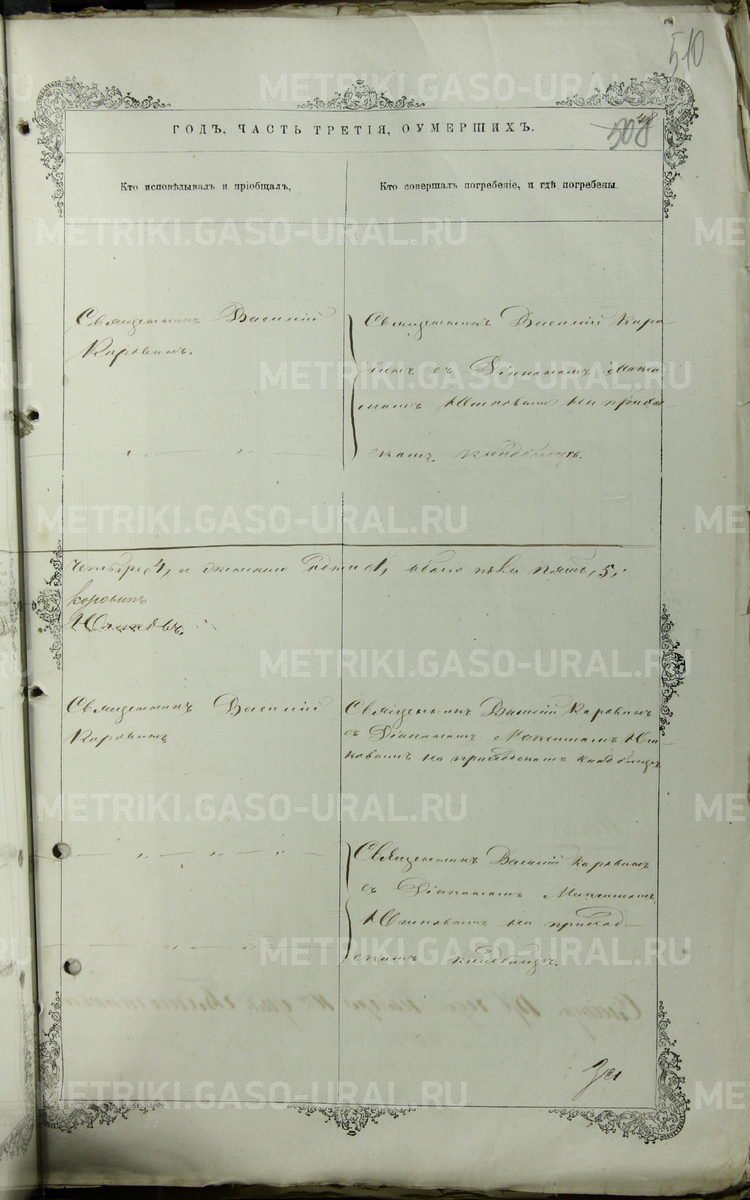 510
508
ГОДЪ, ЧАСТЬ ТРЕТІЯ, ОУМЕРШИХЪ.
Кто исповѣдывалъ и пріобщалъ,
Кто совершалъ погребеніе, и гдѣ погребены.
Священникъ Василій
Коровинъ.
Священникъ Василій Коро
винъ съ Діакономъ Макси
момъ на приход
скомъ кладбищѣ.
четыре 4, и женскаго 1, обоего пола пять, 5,
Коровинъ
Священникъ Василій
Коровинъ
Священникъ Василій Коровинъ
съ Діакономъ Максимомъ
на приходскомъ кладбищѣ
Священникъ Василій Коровинъ
съ Діакономъ Максимомъ
на приход-
скомъ кладбищѣ.
METRIKI.GASO-URAL.RU